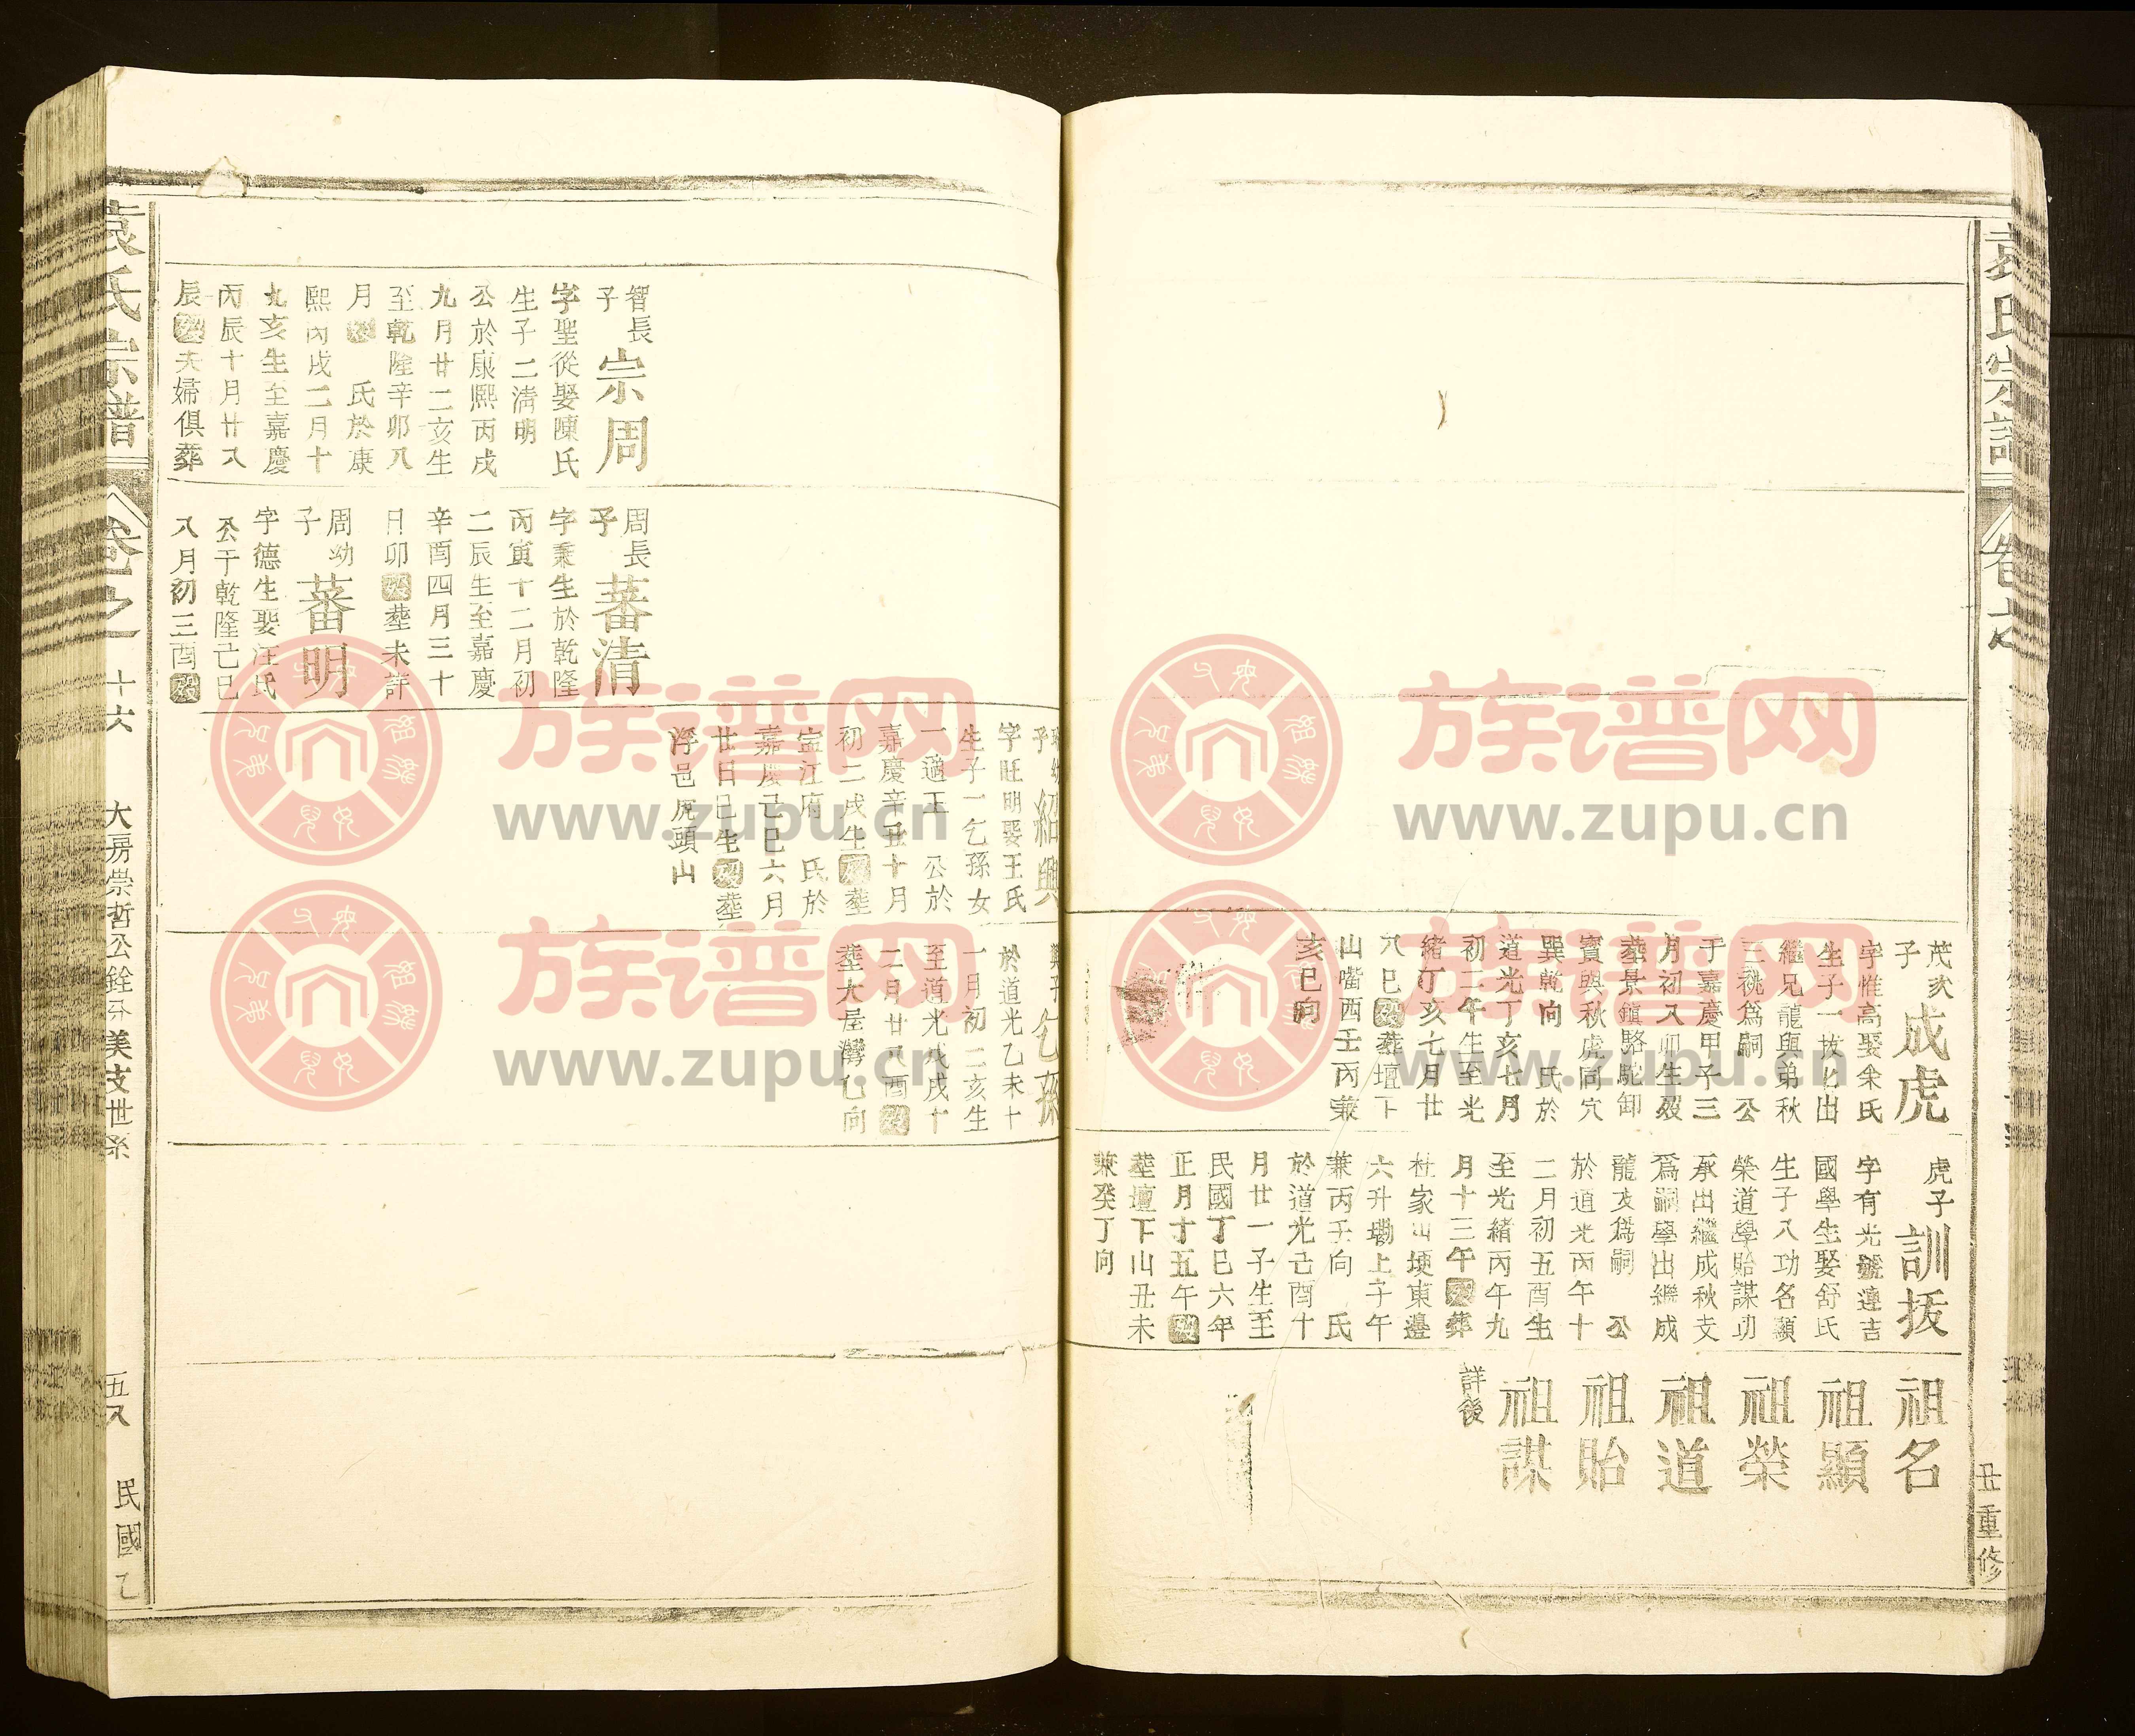 茂次子
成虎
字惟高娶余氏
生子一
出
繼兄龍與弟秋
三祧為嗣 公
于嘉慶甲子三
月初八卯生歿
塟景鎮駱駝卸
寶與秋虎同穴
巽乾向 氏於
道光丁亥七月
初二午生至光
緒丁亥七月廿
八巳歿塟壇下
山嘴酉壬丙兼
亥巳向
虎子
訓拔
字有光號蓮吉
國學生娶舒氏
生子八功名顯
榮道學貽謀功
承出繼成秋支
為嗣學出繼成
龍支為嗣 公
於道光丙午十
二月初五酉生
至光緒丙午九
月十三午歿葬
杜家山埂東邊
六升墈上子午
兼丙壬向 氏
於道光己酉十
月廿一子生至
民國丁巳六年
正月十五午歿
塟壇下山丑未
兼癸丁向
祖名
祖顯
祖榮
祖道
祖貽
祖謀
詳後
丑重修
智長子
宗周
字聖從娶陳氏
生子二清明
公於康熙丙戌
九月廿二亥生
至乾隆辛卯八
月歿 氏於康
熙丙戌二月十
九亥生至嘉慶
丙辰十月廿八
辰歿夫婦俱塟
周長子
蕃清
字秉生於乾隆
丙寅十二月初
二辰生至嘉慶
辛酉四月三十
日卯歿塟未詳
周幼子
蕃明
字德生娶汪氏
公于乾隆己巳
八月初三酉歿
紹興
字旺明娶王氏
生子一乞孫女
一適王 公於
嘉慶辛丑十月
初二戌生歿塟
盂江府 氏於
嘉慶己巳六月
廿日巳生歿塟
浮邑虎頭山
興子
乞孫
於道光乙未十
一月初二亥生
至道光戊戌十
二月廿八酉歿
塟大屋灣乙向
袁氏宗譜
卷之一
十六
大房崇哲公銓分美支世系
五八
民國乙